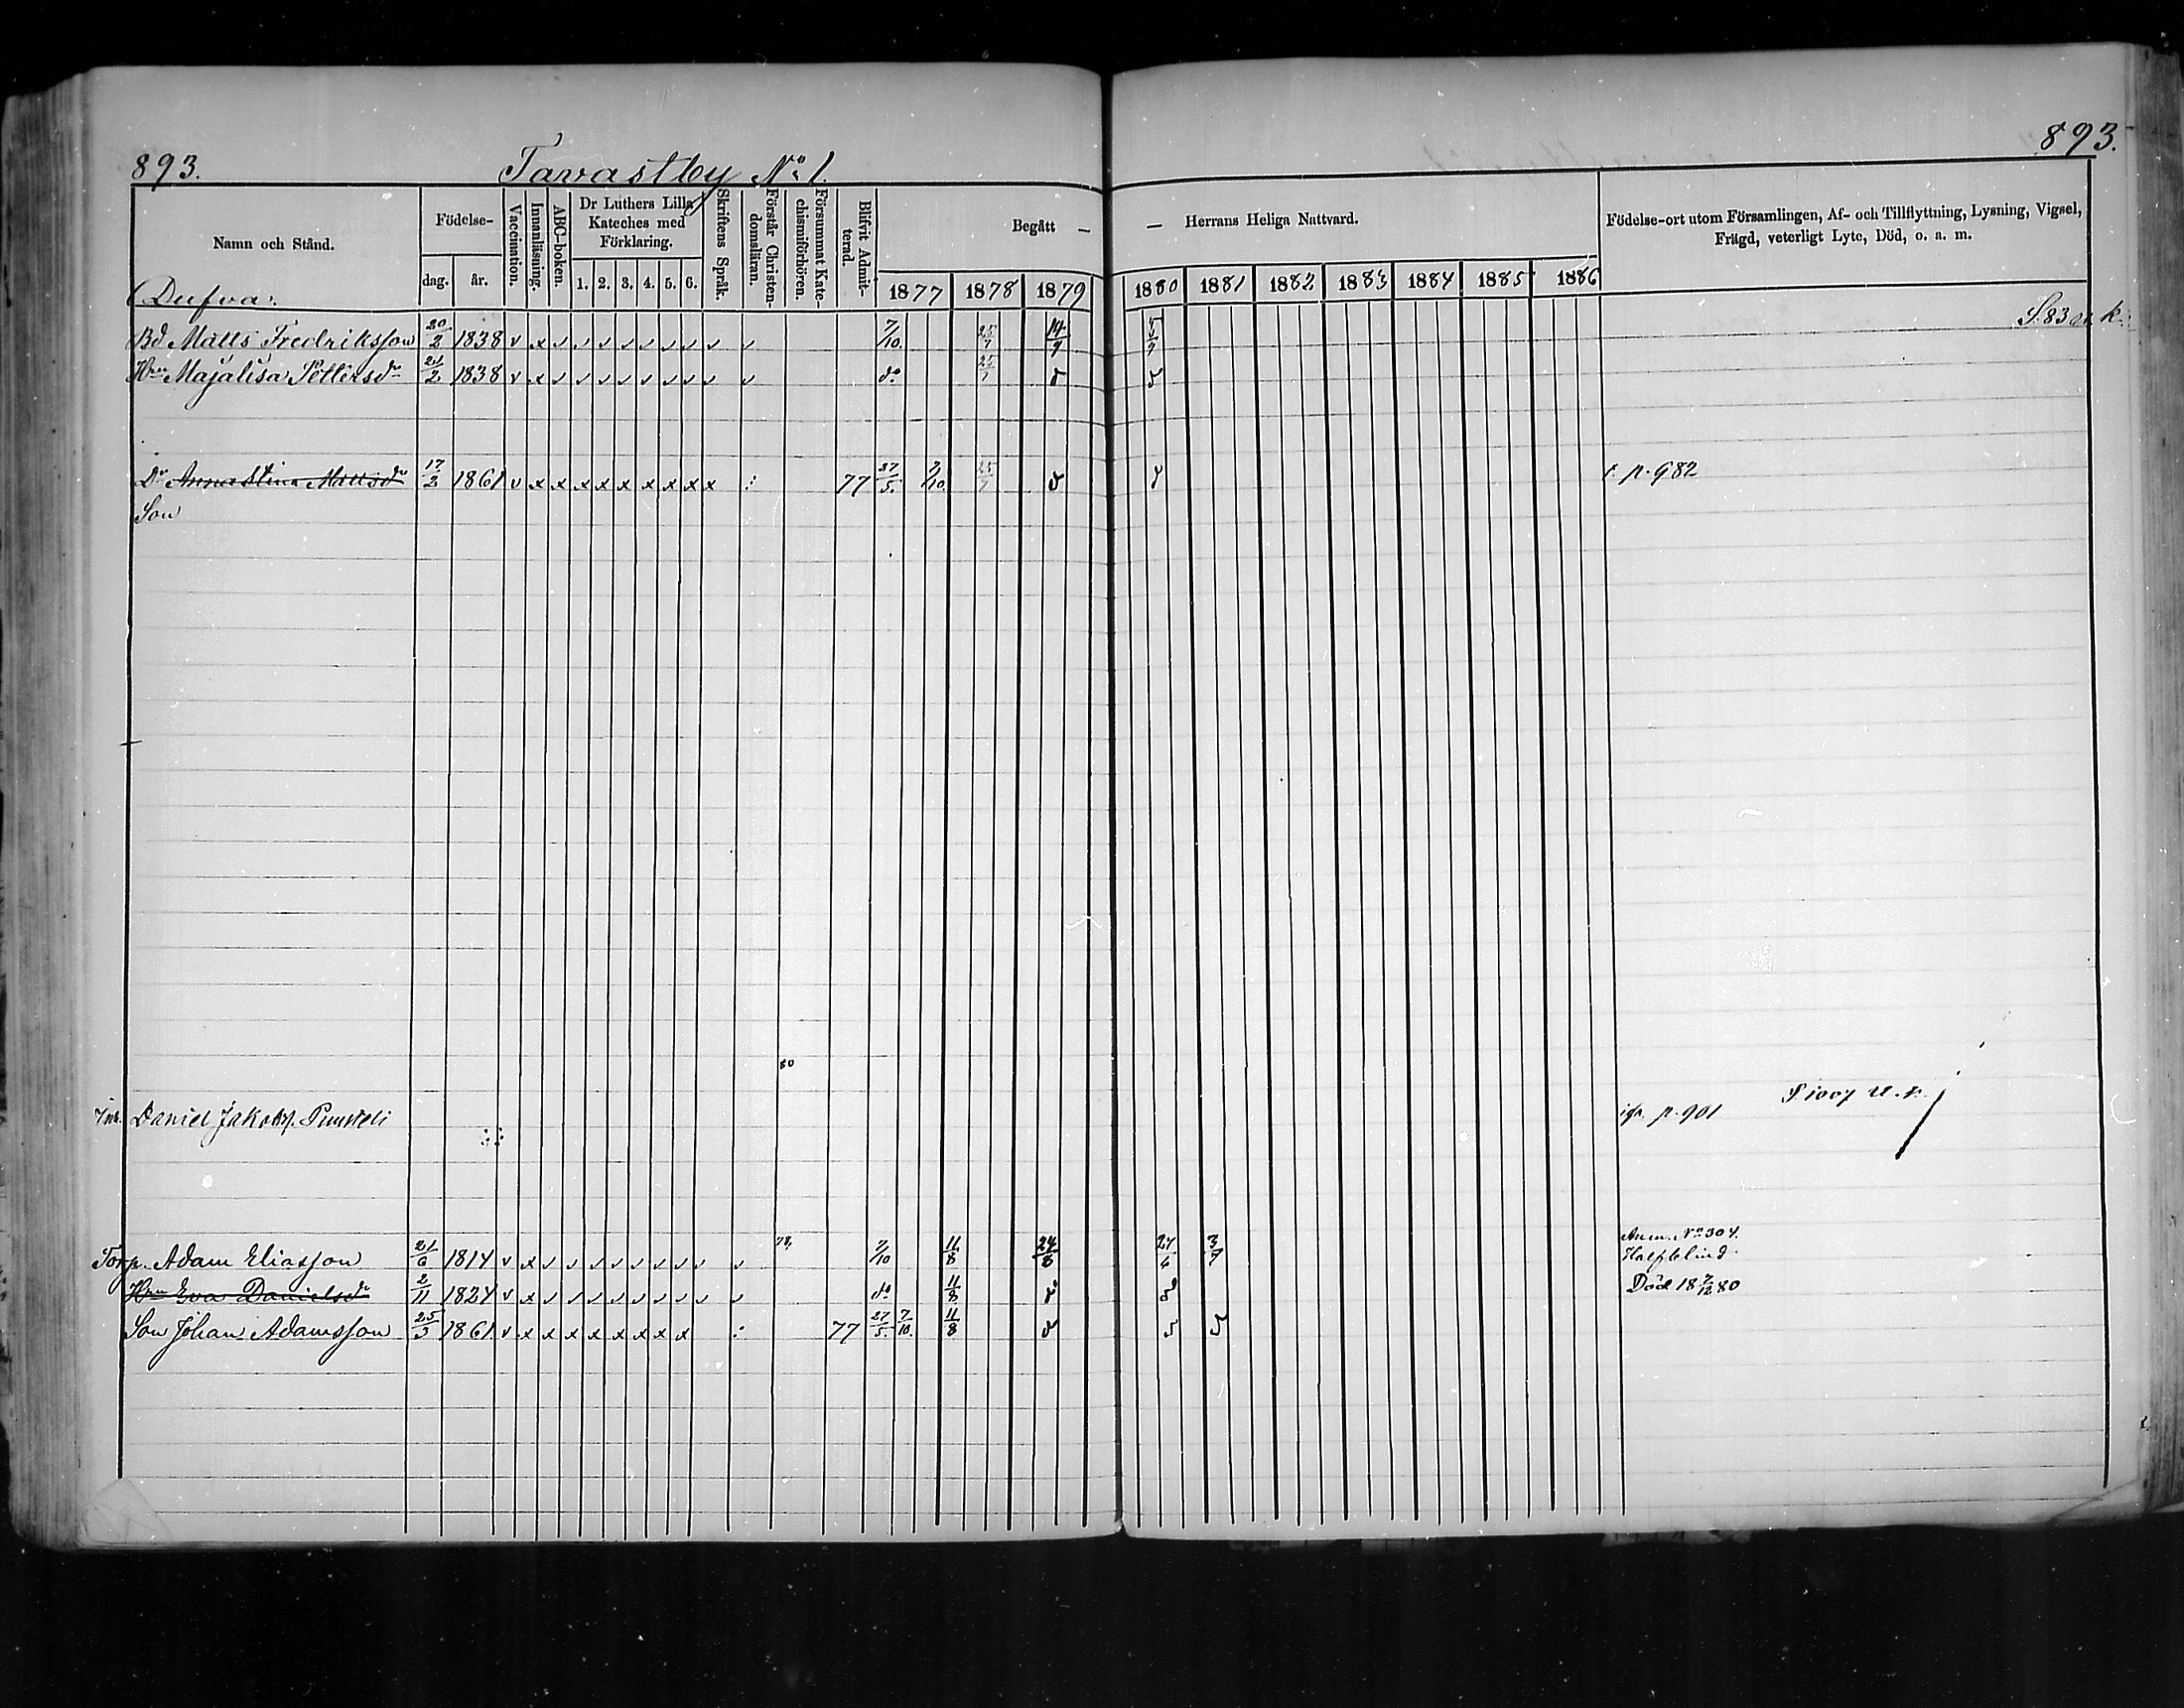 893.
893.
Tavastby No 1.
Namn och Stånd.
Födelse-
dag. år.
Vaccination.
Innanläsning.
ABC-boken.
Dr Luthers Lilla Kateches med Förklaring.
1. 2. 3. 4. 5. 6.
Skriftens Språk.
Förstår Christendomsläran.
Försummat Katechismiförhören.
Blifvit Admitterad.
Begått — — Herrans Heliga Nattvard.
1877 1878 1879 1880 1881 1882 1883 1884 1885 1886
Födelse-ort utom Församlingen, Af- och Tillflyttning, Lysning, Vigsel,
Frägd, veterligt Lyte, Död, o. a. m.
Dufva.
Bd Matts Fredriksson 20/2 1838 v x v v v v v v v v v 7/10. 25/7 14/9 5/9
Hru Majalisa Pettersdr 21/2 1838 v x v v v v v v v v v do 25/7
Dr Annastina Mattsdr 17/2 1861 v x x x x x x x x x : 77 27/5. 7/10. 25/7 p. 982
Son
80
Inh. Daniel Jakobss. Puusteli p. 901 S 1007 u. k.
Torp. Adam Eliasson 21/6 1814 v x v v v v v v v v v 78, 7/10 11/8 24/8 24/4 3/7 Anm. No 304. Halfblind.
Hru Eva Danielsdr 2/11 1824 v x v v v v v v v v v do 11/8 Död 18 7/12 80
Son Johan Adamsson 25/3 1861. v x x x x x x x x : 77 27/5. 7/10. 11/8